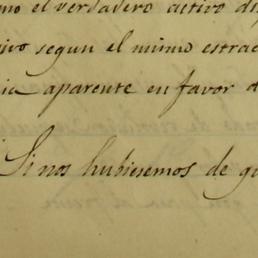 mo el verdadero activo dis
ivo segun el mismo estrac
ia aparente en favor d
Si nos hubiesemos de g